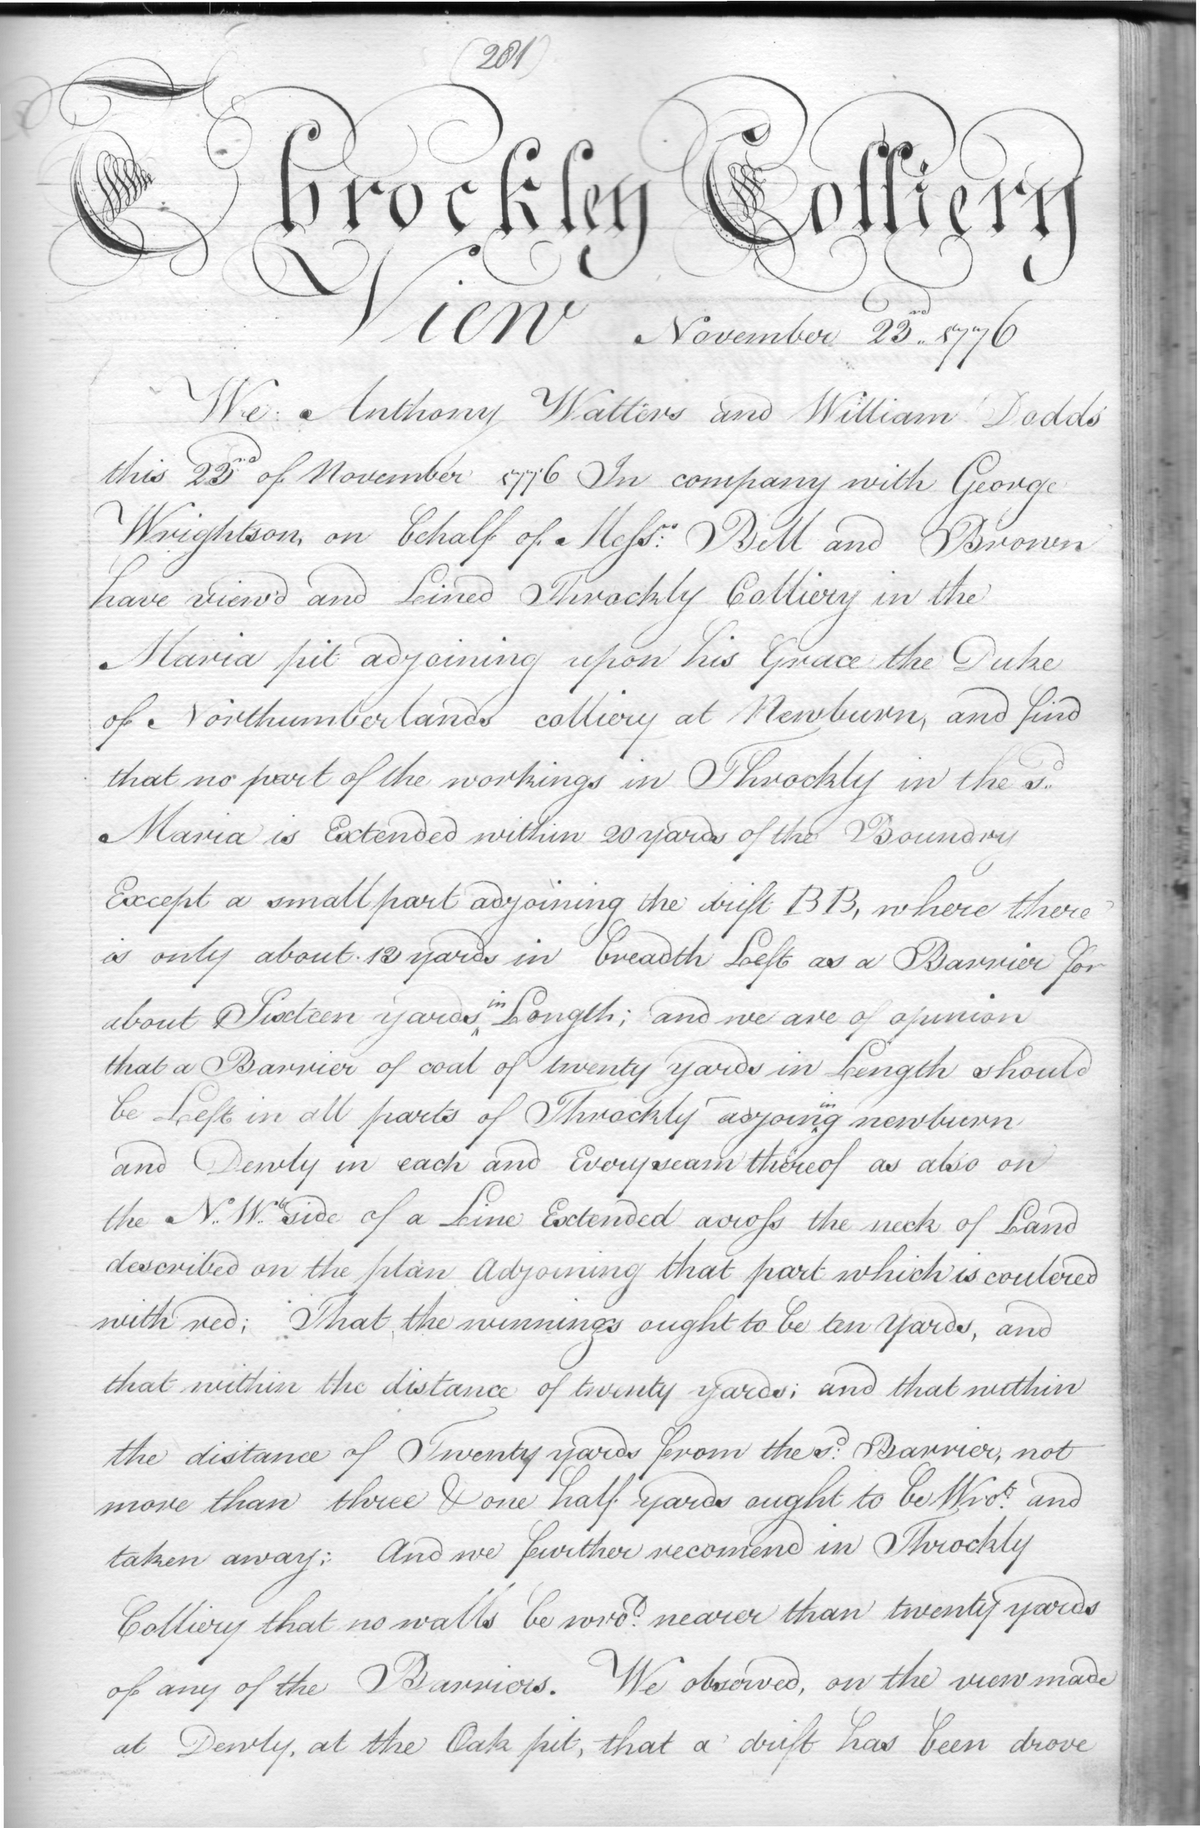 (281)
Throckley Colliery
View November 23rd. 1776
We Anthony Watters and William Dodds
this 23rd of November 1776 In company with George
Wrightson, on behalf of Messrs. Bell and Brown
have view'd and Lined Throckly Colliery in the
Maria pit adjoining upon his Grace the Duke
of Northumberlands colliery at Newburn, and find
that no part of the workings in Throckly in the sd.
Maria is Extended within 20 yards of the Boundry
Except a small part adjoining the drift BB, where there
is only about 12 yards in breadth Left as a Barrier for
about Sixteen yards in Length; and we are of opinion
that a Barrier of coal of twenty yards in Length should
be Left in all parts of Throckly adjoining newburn
and Dewly in each and Every seam thereof as also on
the N. W. side of a Line Extended across the neck of Land
described on the plan Adjoining that part which is coulered
with red; That the winnings ought to be ten yards, and
that within the distance of twenty yards; and that within
the distance of Twenty yards from the sd. Barrier, not
more than three & one half yards ought to be Wrot. and
taken away; And we further recomend in Throckly
Colliery that no walls be wrot. nearer than twenty yards
of any of the Barriers. We observed, on the view made
at Dewly, at the Oak pit, that a drift has been drove